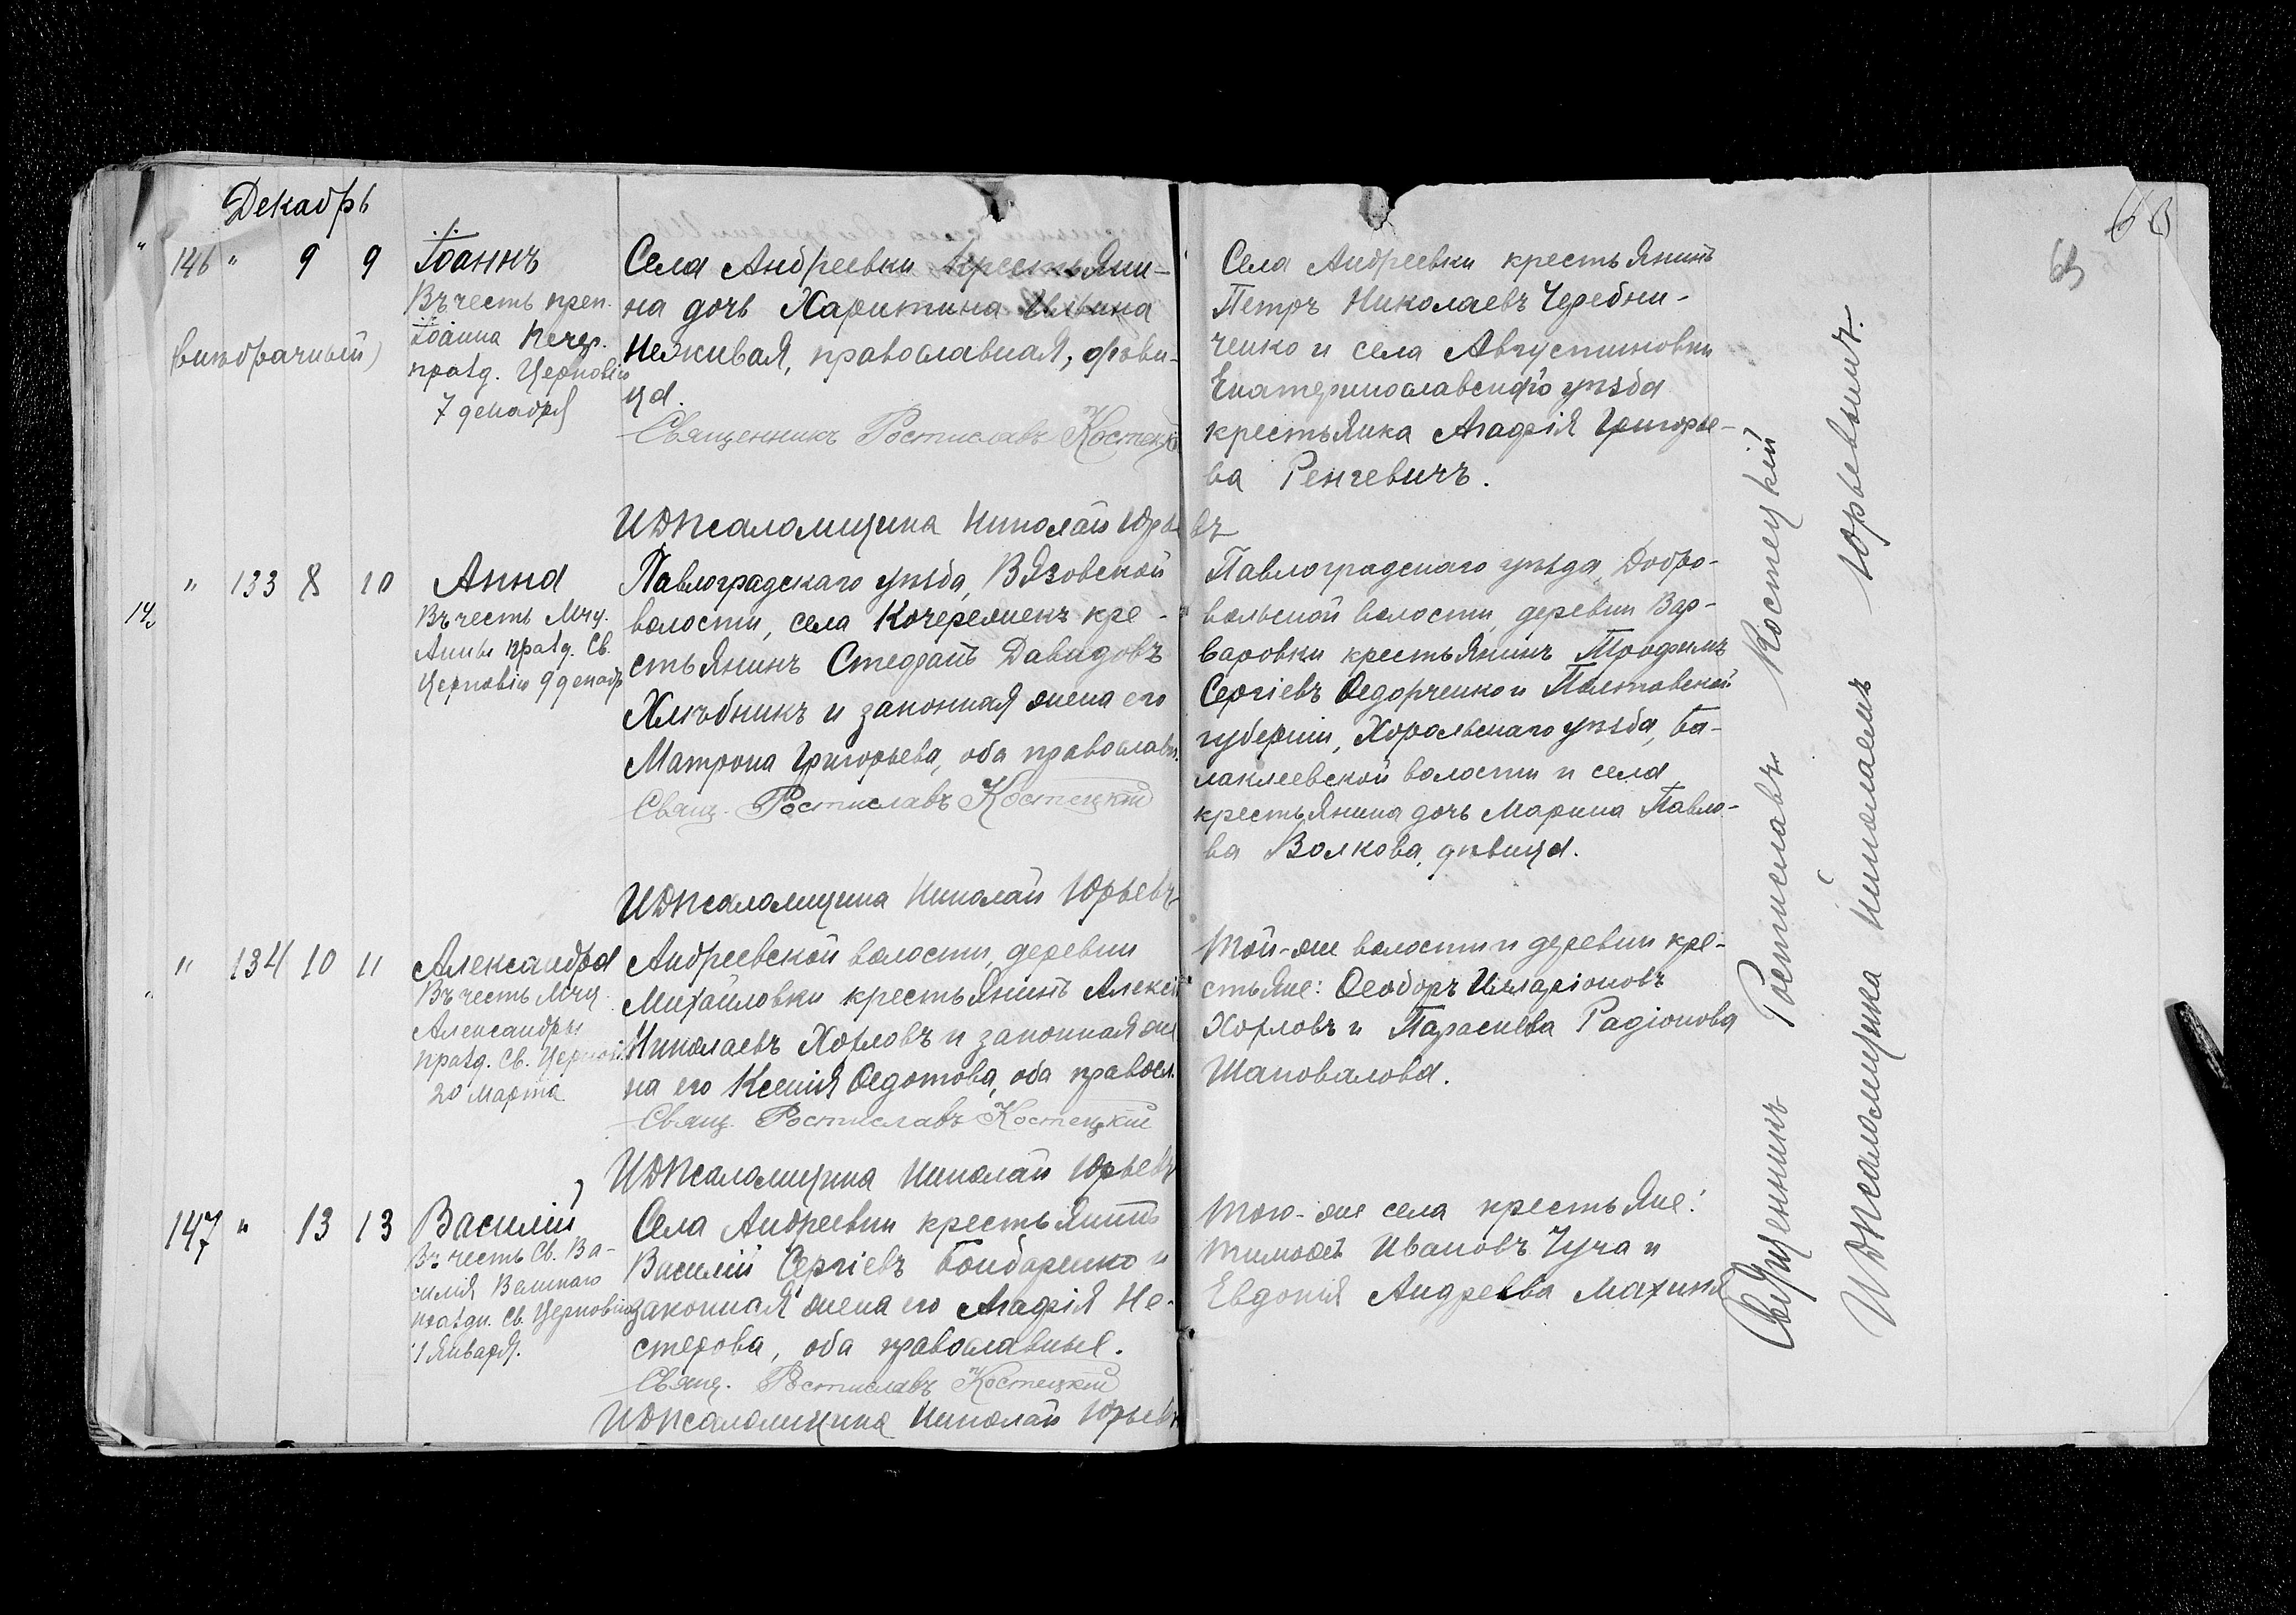 Декабрь
68
" 146 " 9 9 Іоаннъ
Въ честь преп.
Іоанна Печер.
празд. Церковію
7 декабря
(внѣбрачный)
Села Андреевки крестьяни-
на дочь Харитина Ильина
Неживая, православная, дѣви-
ца.
Священникъ Ростиславъ Костецкій
И Д Псаломщика Николай Юрьевъ
Села Андреевки крестьянинъ
Петръ Николаевъ Черебни-
ченко и села Августиновки
Екатеринославскаго уѣзда
крестьянка Агафія Григорье-
ва Ренгевичъ.
" 133 8 10 Анна
Въ честь Мчц.
Анны празд. Св.
Церковію 9 декабр
Павлоградскаго уѣзда, Вязовской
волости, села Кочережекъ кре-
стьянинъ Стефанъ Давидовъ
Хлѣбникъ и законная жена его
Матрона Григорьева, оба православн.
Свящ. Ростиславъ Костецкій
И Д Псаломщика Николай Юрьевъ
Павлоградскаго уѣзда, Добро-
вольской волости, деревни Вар-
варовки крестьянинъ Трофимъ
Сергіевъ Ѳедорченко и Полтавской
губерніи, Хорольскаго уѣзда, Ба-
лаклеевской волости и села,
крестьянина дочь Марина Павло-
ва Волкова, дѣвица.
" 134 10 11 Александра
Въ честь Мчц.
Александры
празд. Св. Церковію
20 марта
Андреевской волости, деревни
Михайловки крестьянинъ Алексій
Николаевъ Хорловъ и законная же
на его Ксенія Ѳедотова, оба правосл.
Свящ. Ростиславъ Костецкій
И Д Псаломщика Николай Юрьевъ
Той-же волости и деревни кре-
стьяне: Ѳеодоръ Иларіоновъ
Хорловъ и Параскева Радіонова
Шаповалова.
147 " 13 13 Василій
Въ честь Св. Ва-
силія Великаго
праздн. Св. Церковію
1 января.
Села Андреевки крестьянинъ
Василій Сергіевъ Бондаренко и
законная жена его Агафія Не-
стерова, оба православные.
Свящ. Ростиславъ Костецкій
И Д Псаломщика Николай Юрьевъ
Того-же села крестьяне:
Тимоѳей Ивановъ Чуча и
Евдокія Андреева Махиня
Священникъ Ростиславъ Костецкій
И Д Псаломщика Николай Юрьевъ